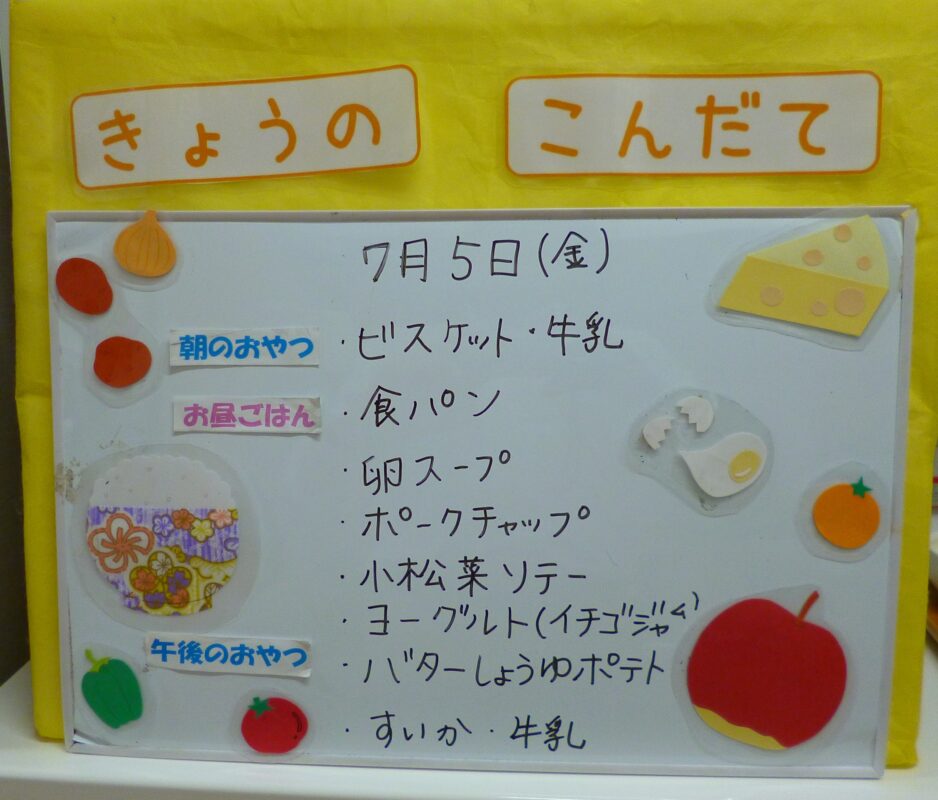 きょうの こんだて
7月5日(金)
朝のおやつ ・ビスケット・牛乳
お昼ごはん ・食パン
・卵スープ
・ポークチャップ
・小松菜ソテー
・ヨーグルト(イチゴジャム)
午後のおやつ ・バターしょうゆポテト
・すいか・牛乳